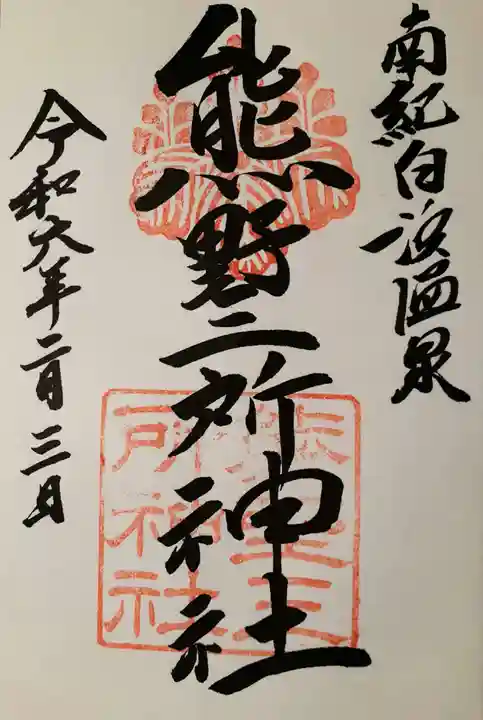 南紀白浜温泉
熊野三所神社
令和六年二月三日
所神社